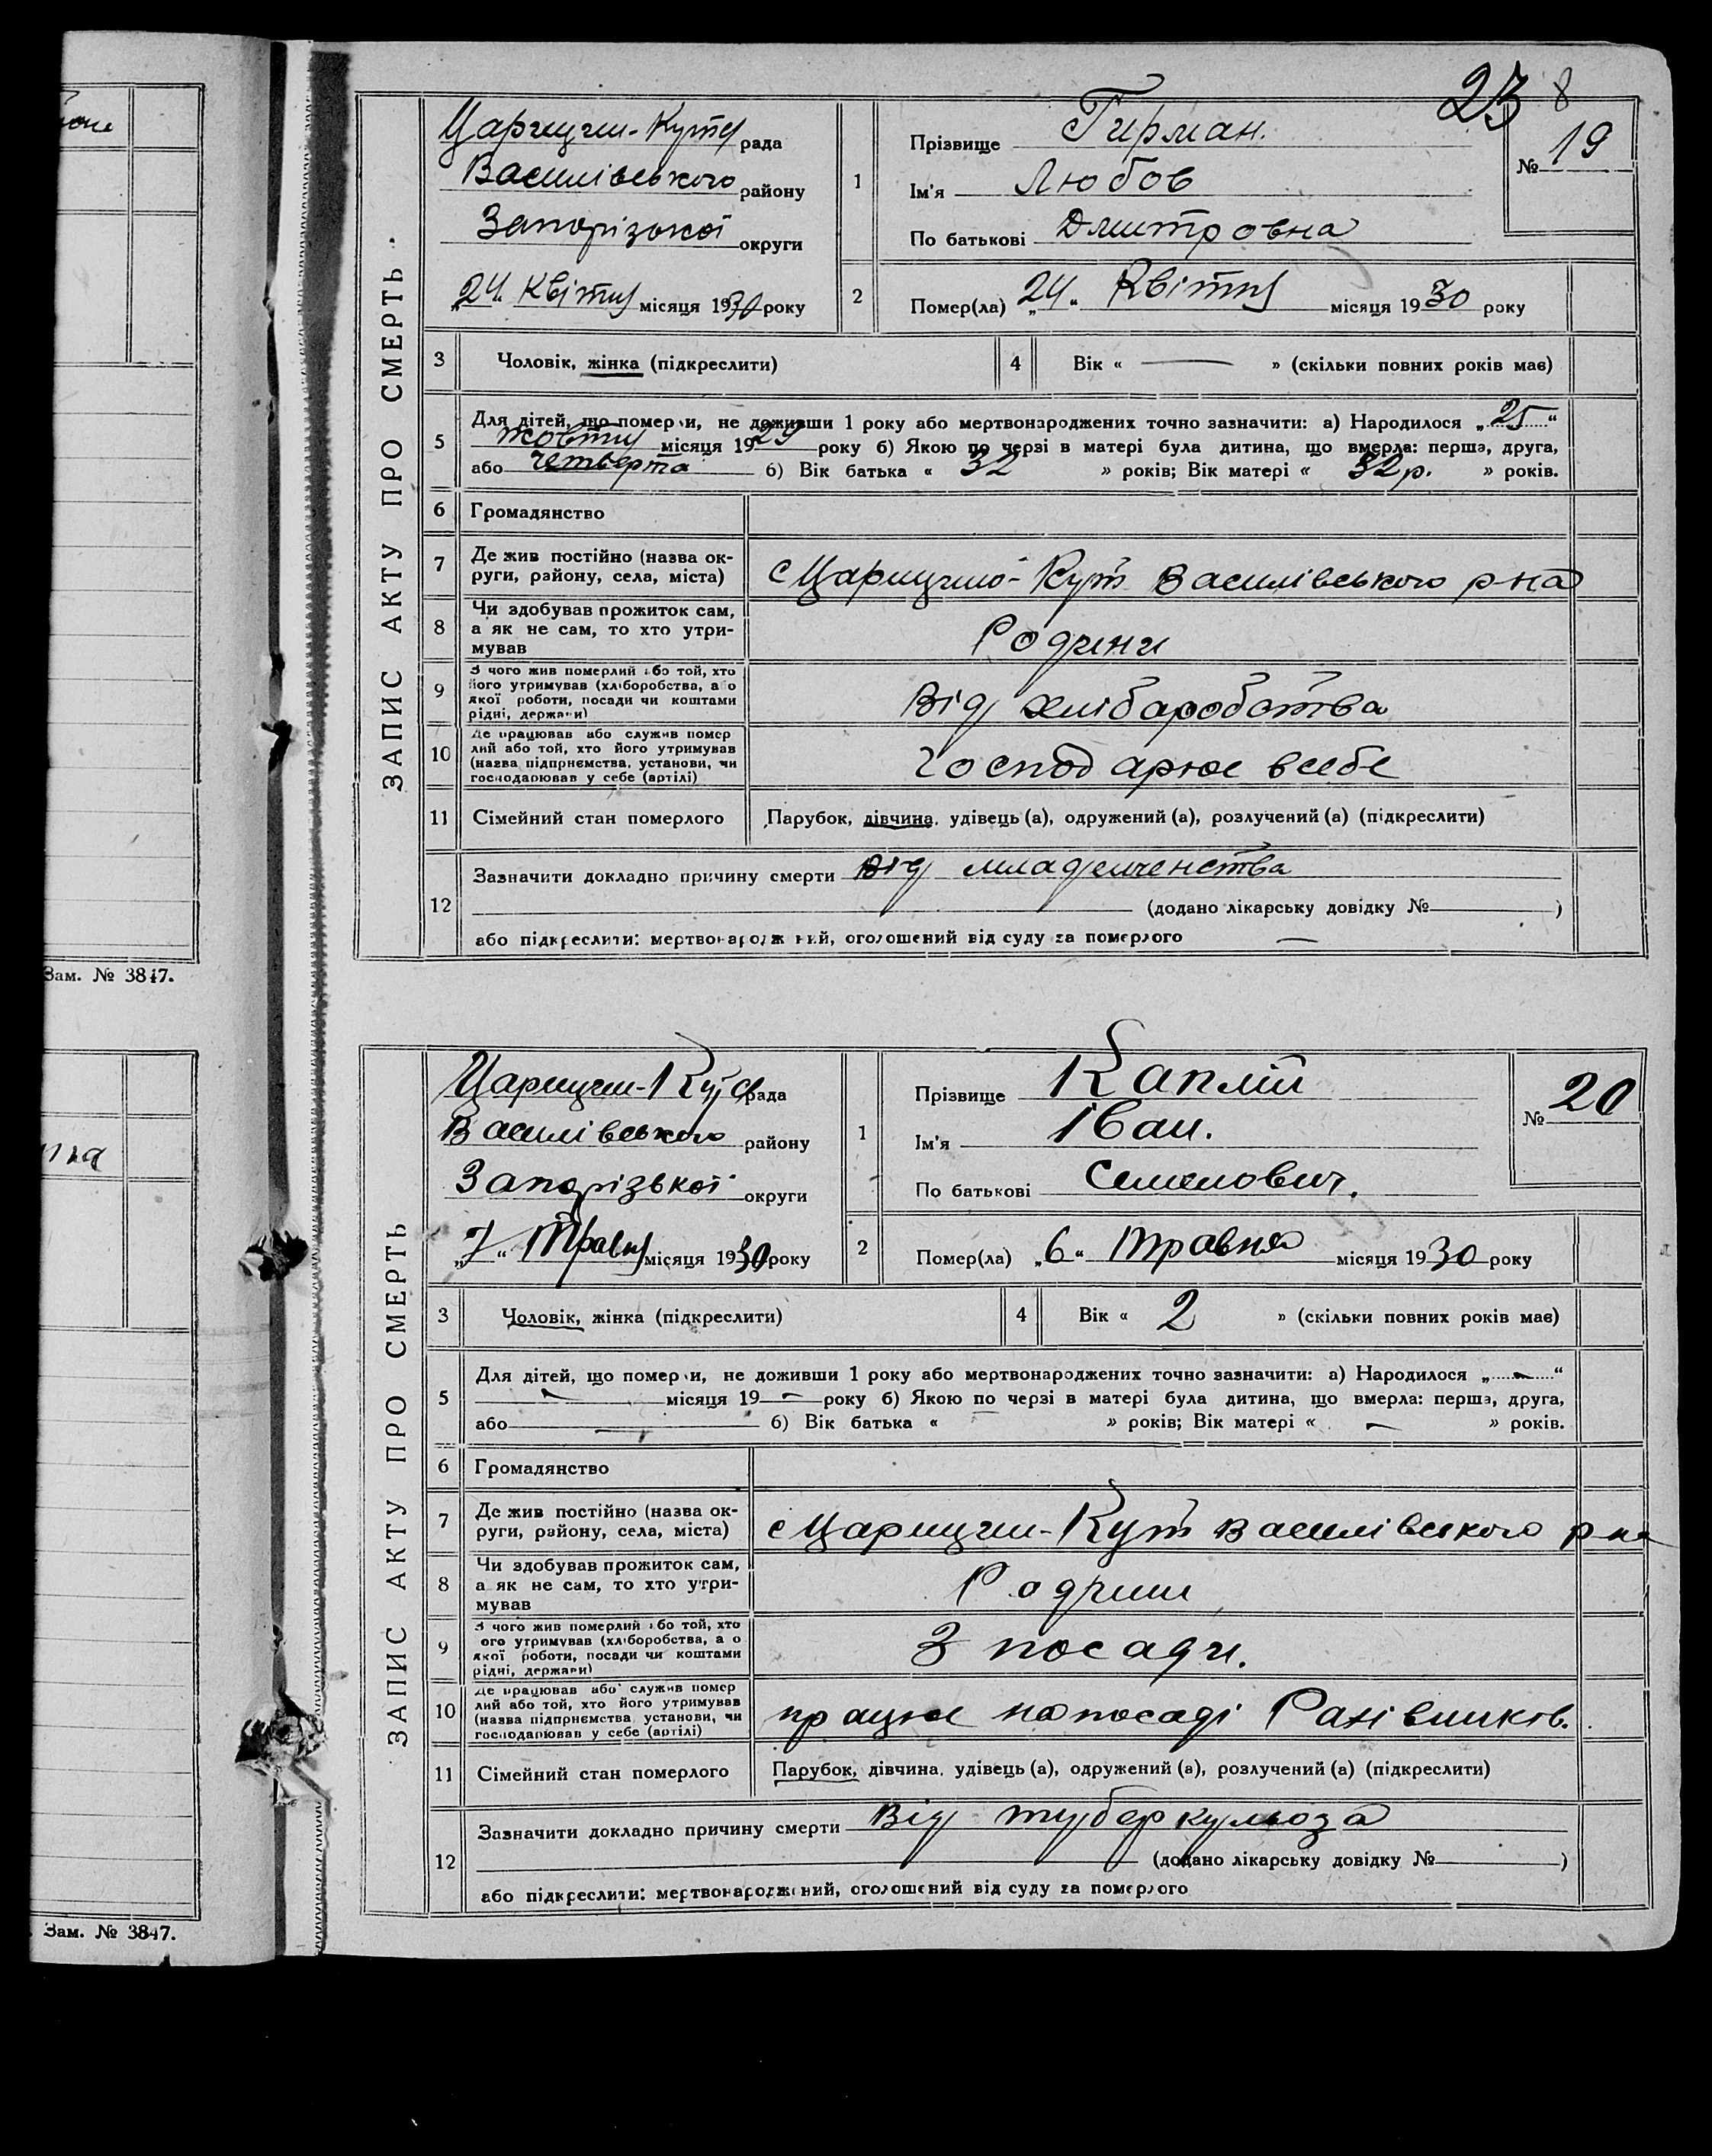 23 8
ЗАПИС АКТУ ПРО СМЕРТЬ
Царицин-Кутс рада
Василівського району
Запорізької округи
„24" Квітня місяця 1930 року
1
Прізвище Гирман.
Ім'я Любов
По батькові Дмитровна
№ 19
2
Помер(ла) „24" Квітня місяця 1930 року
3 Чоловік, жінка (підкреслити)
4 Вік « — » (скільки повних років має)
5
Для дітей, що померли, не доживши 1 року або мертвонароджених точно зазначити: а) Народилося „25"
жовтня місяця 1929 року б) Якою по черзі в матері була дитина, що вмерла: перша, друга,
або четверта б) Вік батька « 32 » років; Вік матері « 32 р. » років.
6 Громадянство
7 Де жив постійно (назва ок-
руги, району, села, міста)
с Царицино-Кут Василівського р-на
8 Чи здобував прожиток сам,
а як не сам, то хто утри-
мував
Родини
9 З чого жив померлий або той, хто
його утримував (хліборобства, або
якої роботи, посади чи коштами
рідні, держави)
Від хлібаробства
10 Де працював або служив помер
лий або той, хто його утримував
(назва підприємства, установи, чи
господарював у себе (артілі)
господарює всебе
11 Сімейний стан померлого
Парубок, дівчина, удівець (а), одружений (а), розлучений (а) (підкреслити)
12
Зазначити докладно причину смерти від младенченства
(додано лікарську довідку № )
або підкреслити: мертвонароджений, оголошений від суду за померлого —
Зам. № 3847.
ЗАПИС АКТУ ПРО СМЕРТЬ
Царицин-Кутс рада
Василівського району
Запорізької округи
„7" Травня місяця 1930 року
1
Прізвище Каплій
Ім'я Іван.
По батькові Семенович.
№ 20
2
Помер(ла) „6" Травня місяця 1930 року
3 Чоловік, жінка (підкреслити)
4 Вік « 2 » (скільки повних років має)
5
Для дітей, що померли, не доживши 1 року або мертвонароджених точно зазначити: а) Народилося „ — "
— місяця 19 — року б) Якою по черзі в матері була дитина, що вмерла: перша, друга,
або — б) Вік батька « — » років; Вік матері « — » років.
6 Громадянство
7 Де жив постійно (назва ок-
руги, району, села, міста)
с Царицин-Кут Василівского р-на
8 Чи здобував прожиток сам,
а як не сам, то хто утри-
мував
Родини
9 З чого жив померлий або той, хто
ого утримував (хліборобства, а о
якої роботи, посади чи коштами
рідні, держави)
З посади.
10 Де працював або служив помер
лий або той, хто його утримував
(назва підприємства установи, чи
господарював у себе (артілі)
працює на посаді
11 Сімейний стан померлого
Парубок, дівчина, удівець (а), одружений (а), розлучений (а) (підкреслити)
12
Зазначити докладно причину смерти Від туберкульоза
(додано лікарську довідку № )
або підкреслити: мертвонароджений, оголошений від суду за померлого
Зам. № 3847.